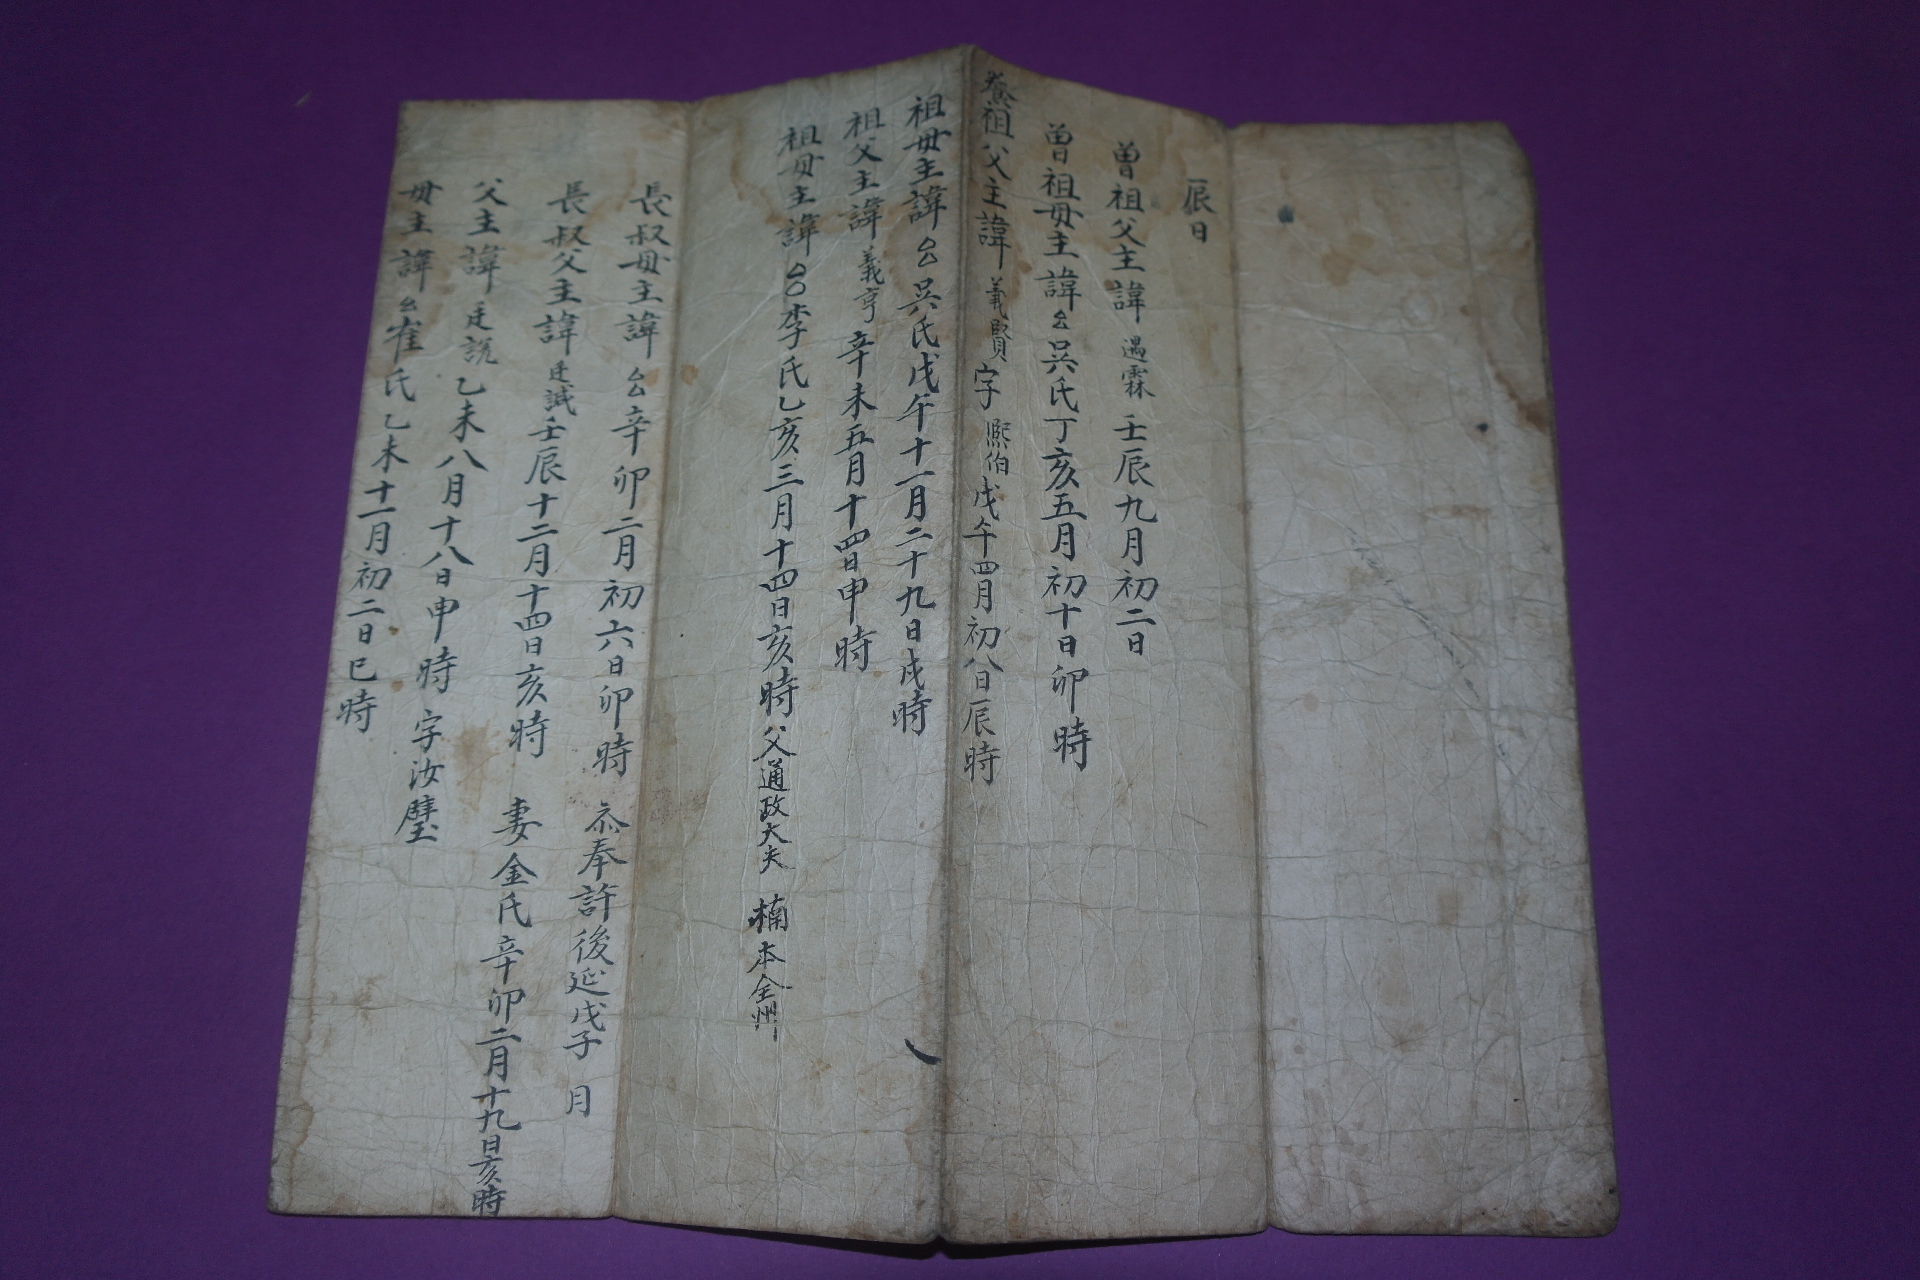 辰日
曾祖父主諱 遇霖 壬辰九月初二日
曾祖母主諱 吳氏丁亥五月初十日卯時
養祖父主諱 義賢 字 熙伯 戊午四月初八日辰時
祖母主諱 吳氏戊午十一月二十九日戌時
祖父主諱 義亨 辛未五月十四日申時
祖母主諱 李氏乙亥三月十四日亥時父通政大夫 楠 本全州
長叔母主諱 辛卯二月初六日卯時 奉許後延戊子 月
長叔父主諱 廷誠 壬辰十二月十四日亥時 妻金氏辛卯二月十九日亥時
父主諱 廷說 乙未八月十八日申時 字汝璧
母主諱 崔氏乙未十一月初二日巳時